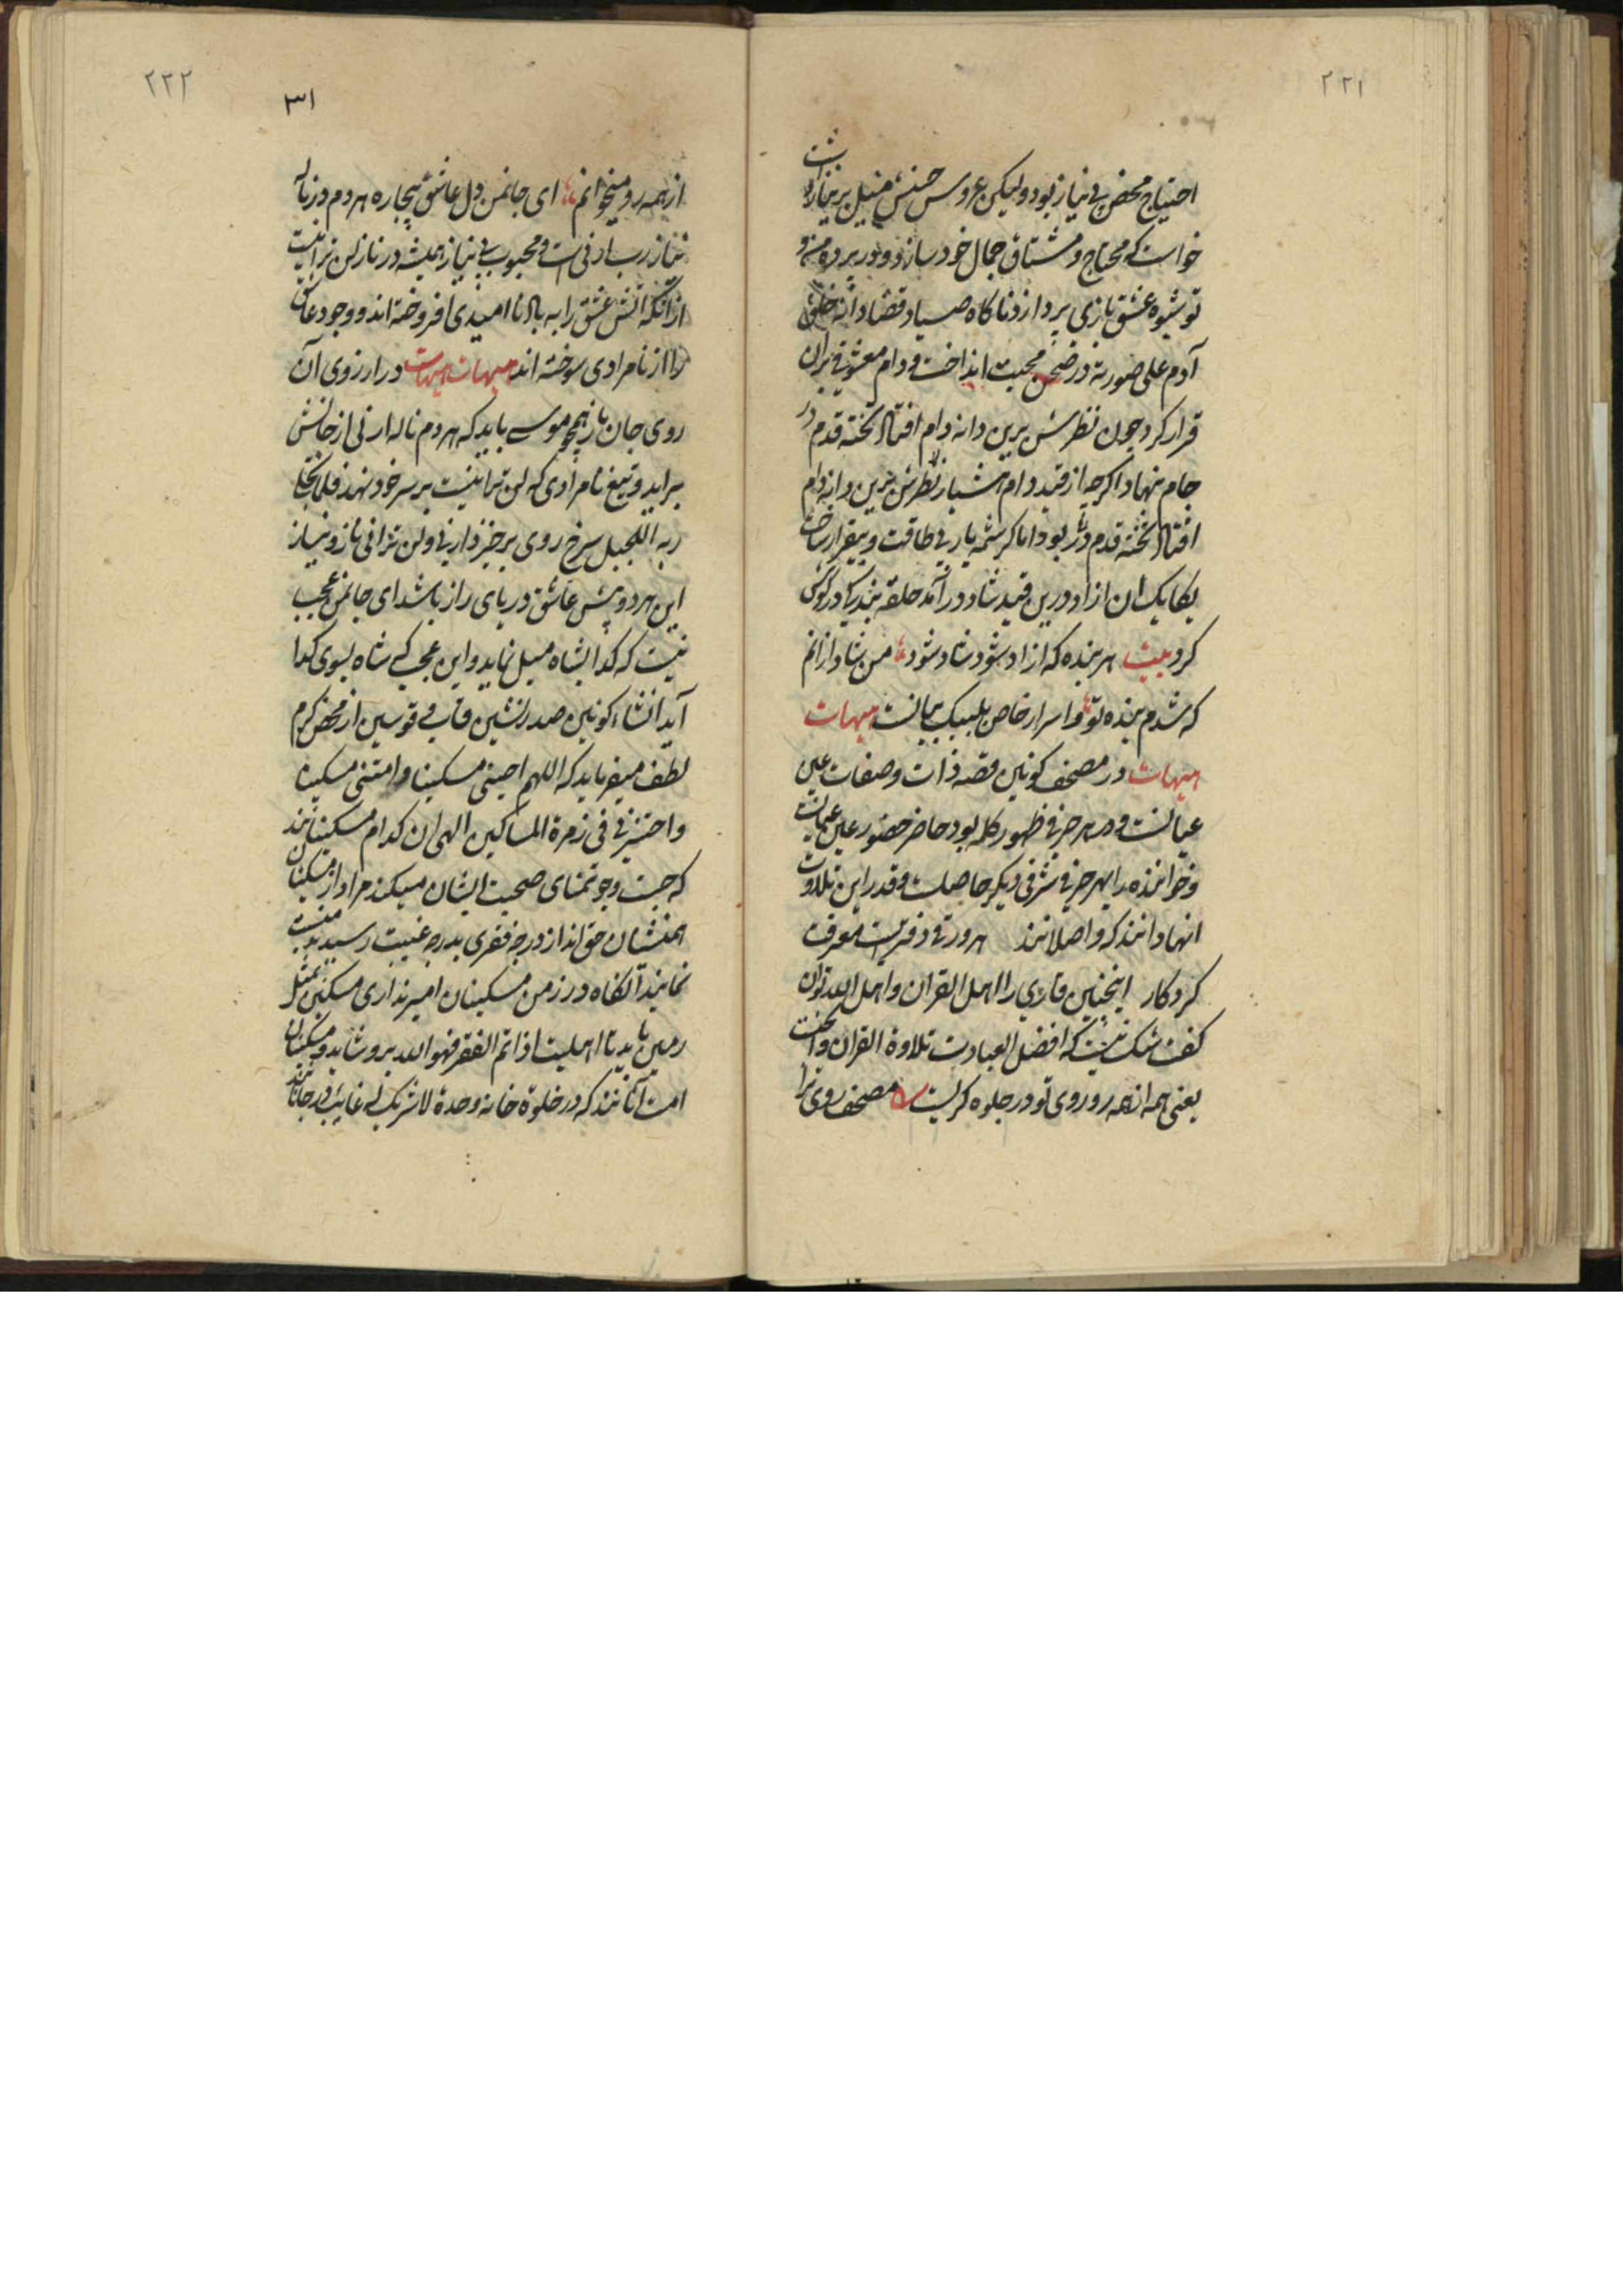 ۲۲۱
احتیاج محض بی نیاز بود ولیکن عروس حسنش میل بر نیاز داشت
خواست که محتاج و مشتاق جمال خود سازد و در پرده من و
تو شیوه عشق بازی پردازد ناکاه صیاد قضا دانه خلق
آدم علی صورته در صحن محبت انداخت و دام معشوقی بران
قرار کرد چون نظرش برین دانه و دام افتاد نخته قدم در
جام نهاد اکرچه از قید دام هشیار نظرش برین دانه و دام
افتاد نخته قدم در بود اما کرشمه یار بی طاقت و بیقرار ساخت
یکایک ان ازاد درین قید شاد درآمد حلقه بندکی در کوش
کرد بیت هر بنده که ازاد شود شاد شود من شاد ازانم
که شدم بنده تو و اسرار خاص بلبیک بیانست هیهات
هیهات در مصحف کونین قصه ذات و صفات عین
عیانست و در هر حرفی ظهور کله بود حاضر حضور عین عیانست
و خواننده را بهر حرفی شرفی دیکر حاصلست و قدر این تلاوت
انها دانند که واصلانند هر ورقی دفتریست معرفت
کردکار اینچنین قاری را اهل القران و اهل الله توان
کفت شک نیست که افضل العبادت تلاوة القران
یعنی همه از همه رو روی تو در جلوه کریست مصحف روی ترا
۲۲۲
۳۱
از همه رو میخوانم ای جانمن دل عاشق بیچاره هر دم در ناله
نیاز رب ارنی است و محبوب بی نیاز همیشه در ناز لن ترانیست
ازانکه اتش عشق را به باد نا امیدی افروخته اند و وجود عاشق
را از نامرادی سوخته اند هیهات هیهات در ارزوی آن
روی جان باز همچو موسی باید که هر دم ناله ارنی از جانش
براید و تیغ نامرادی که لن ترانیست بر سر خود نهد فلما تجلی
ربه للجبل سرخ روی برخیزد ارنی و لن ترانی ناز و نیاز
این هر دو پیش عاشق دریای راز باشد ای جانمن عجب
نیست که کدا بشاه میل نماید و این عجب که شاه بسوی کدا
آید انشاه کونین صدر نشین قاب قوسین از محض کرم
لطف میفرماید که اللهم احینی مسکینا و امتنی مسکینا
و احشرنی فی زمرة المساکین الهی ان کدام مسکینانند
که جست وجو تمنای صحبت ایشان میکند مراد از مسکینان
همنشنان حق اند از درجه فقری بدرجه غنیت رسید
نمایند آنکاه در زمن مسکینان امیر نداری مسکین بمثل
زمین باید تا اهلیت اذا تم الفقر فهو الله برو شاید و مسکینان
امت آنانند که در خلوة خانه وحدة لا شریک له غایب